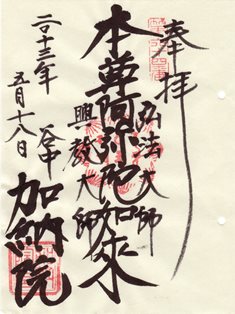 奉拝
弘法大師
本尊阿弥陀如来
興教大師
二〇十三年
五月十八日
谷中
加納院